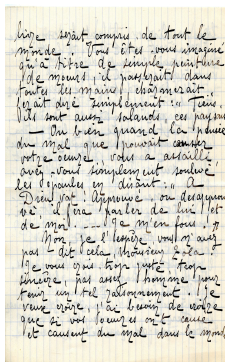 livre serait compris de tout le
monde. Vous êtes-vous imaginé
qu'à titre de simple peinture
de mœurs, il passerait dans
toutes les mains, charmerait
ferait dire simplement : " Tiens,
ils sont aussi salauds, ces paysans
— Ou bien quand la pensée
du mal que pouvait causer
votre œuvre, vous a assailli,
avez-vous simplement soulevé
les épaules en disant : " A
Dieu vat ! Approuvé ou désapprou
vé, il fera parler de lui et
de moi ... Je m'en fous ! "
Non, je l'espère, vous n'avez
pas dit cela, Monsieur Zola !
Je vous crois trop juste, trop
sincère, pas assez homme pour
tenir un tel raisonnement. Je
veux croire, j'ai besoin de croire
que si vos œuvres ont causé
et causent du mal dans le monde